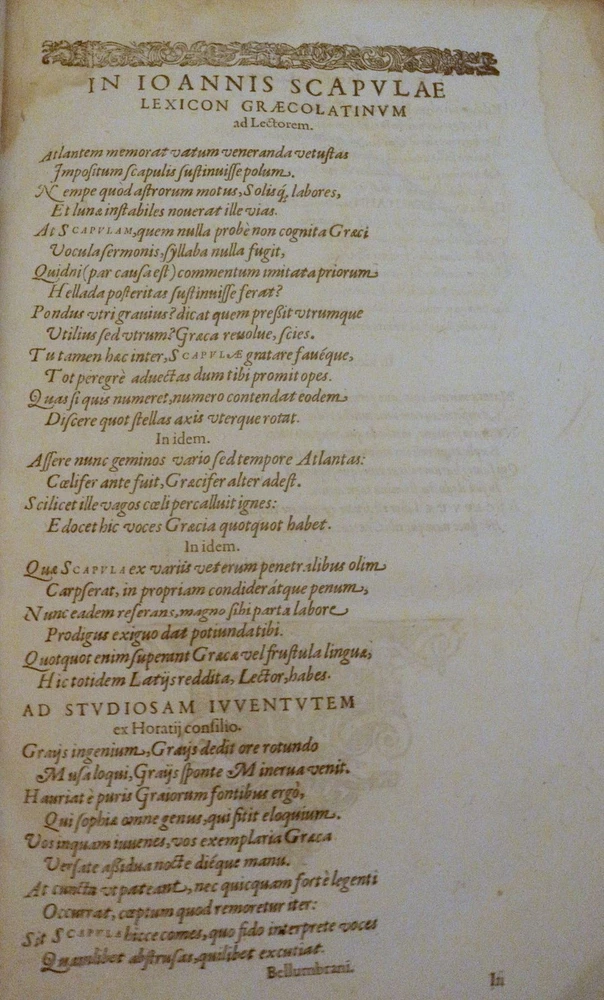 IN IOANNIS SCAPVLAE
LEXICON GRÆCOLATINVM
ad Lectorem.
Atlantem memorat vatum veneranda vetustas
Impositum scapulis sustinuisse polum.
Nempe quod astrorum motus, Solisq́; labores,
Et lunæ instabiles nouerat ille vias.
At SCAPVLAM, quem nulla probè non cognita Græci
Vocula sermonis, syllaba nulla fugit,
Quidni (par causa est) commentum imitata priorum
Hellada posteritas sustinuisse ferat?
Pondus vtri grauius? dicat quem preßit vtrumque
Vtilius sed vtrum? Græca reuolue, scies.
Tu tamen hæc inter, SCAPVLÆ gratare fauéque,
Tot peregrè aduectas dum tibi promit opes.
Quas si quis numeret, numero contendat eodem
Discere quot stellas axis vterque rotat.
In idem.
Assere nunc geminos vario sed tempore Atlantas:
Cœlifer ante fuit, Græcifer alter adest.
Scilicet ille vagos cœli percalluit ignes:
Edocet hic voces Græcia quotquot habet.
In idem.
Quæ SCAPVLA ex variis veterum penetralibus olim
Carpserat, in propriam condiderátque penum,
Nunc eadem referans, magno sibi parta labore
Prodigus exiguo dat potiunda tibi.
Quotquot enim superant Græcæ vel frustula linguæ,
Hic totidem Latijs reddita, Lector, habes.
AD STVDIOSAM IVVENTVTEM
ex Horatij consilio.
Graijs ingenium, Graijs dedit ore rotundo
Musa loqui, Graijs sponte Minerua venit.
Hauriat è puris Graiorum fontibus ergò,
Qui sophiæ omne genus, qui sitit eloquium.
Vos inquam iuuenes, vos exemplaria Græca
Versate aßidua nocte diéque manu.
At cuncta vt pateant, nec quicquam fortè legenti
Occurrat, cœptum quod remoretur iter:
Sit SCAPVLA hicce comes, quo fido interprete voces
Quamlibet abstrusas, quilibet excutiat.
Bellumbrani.
In